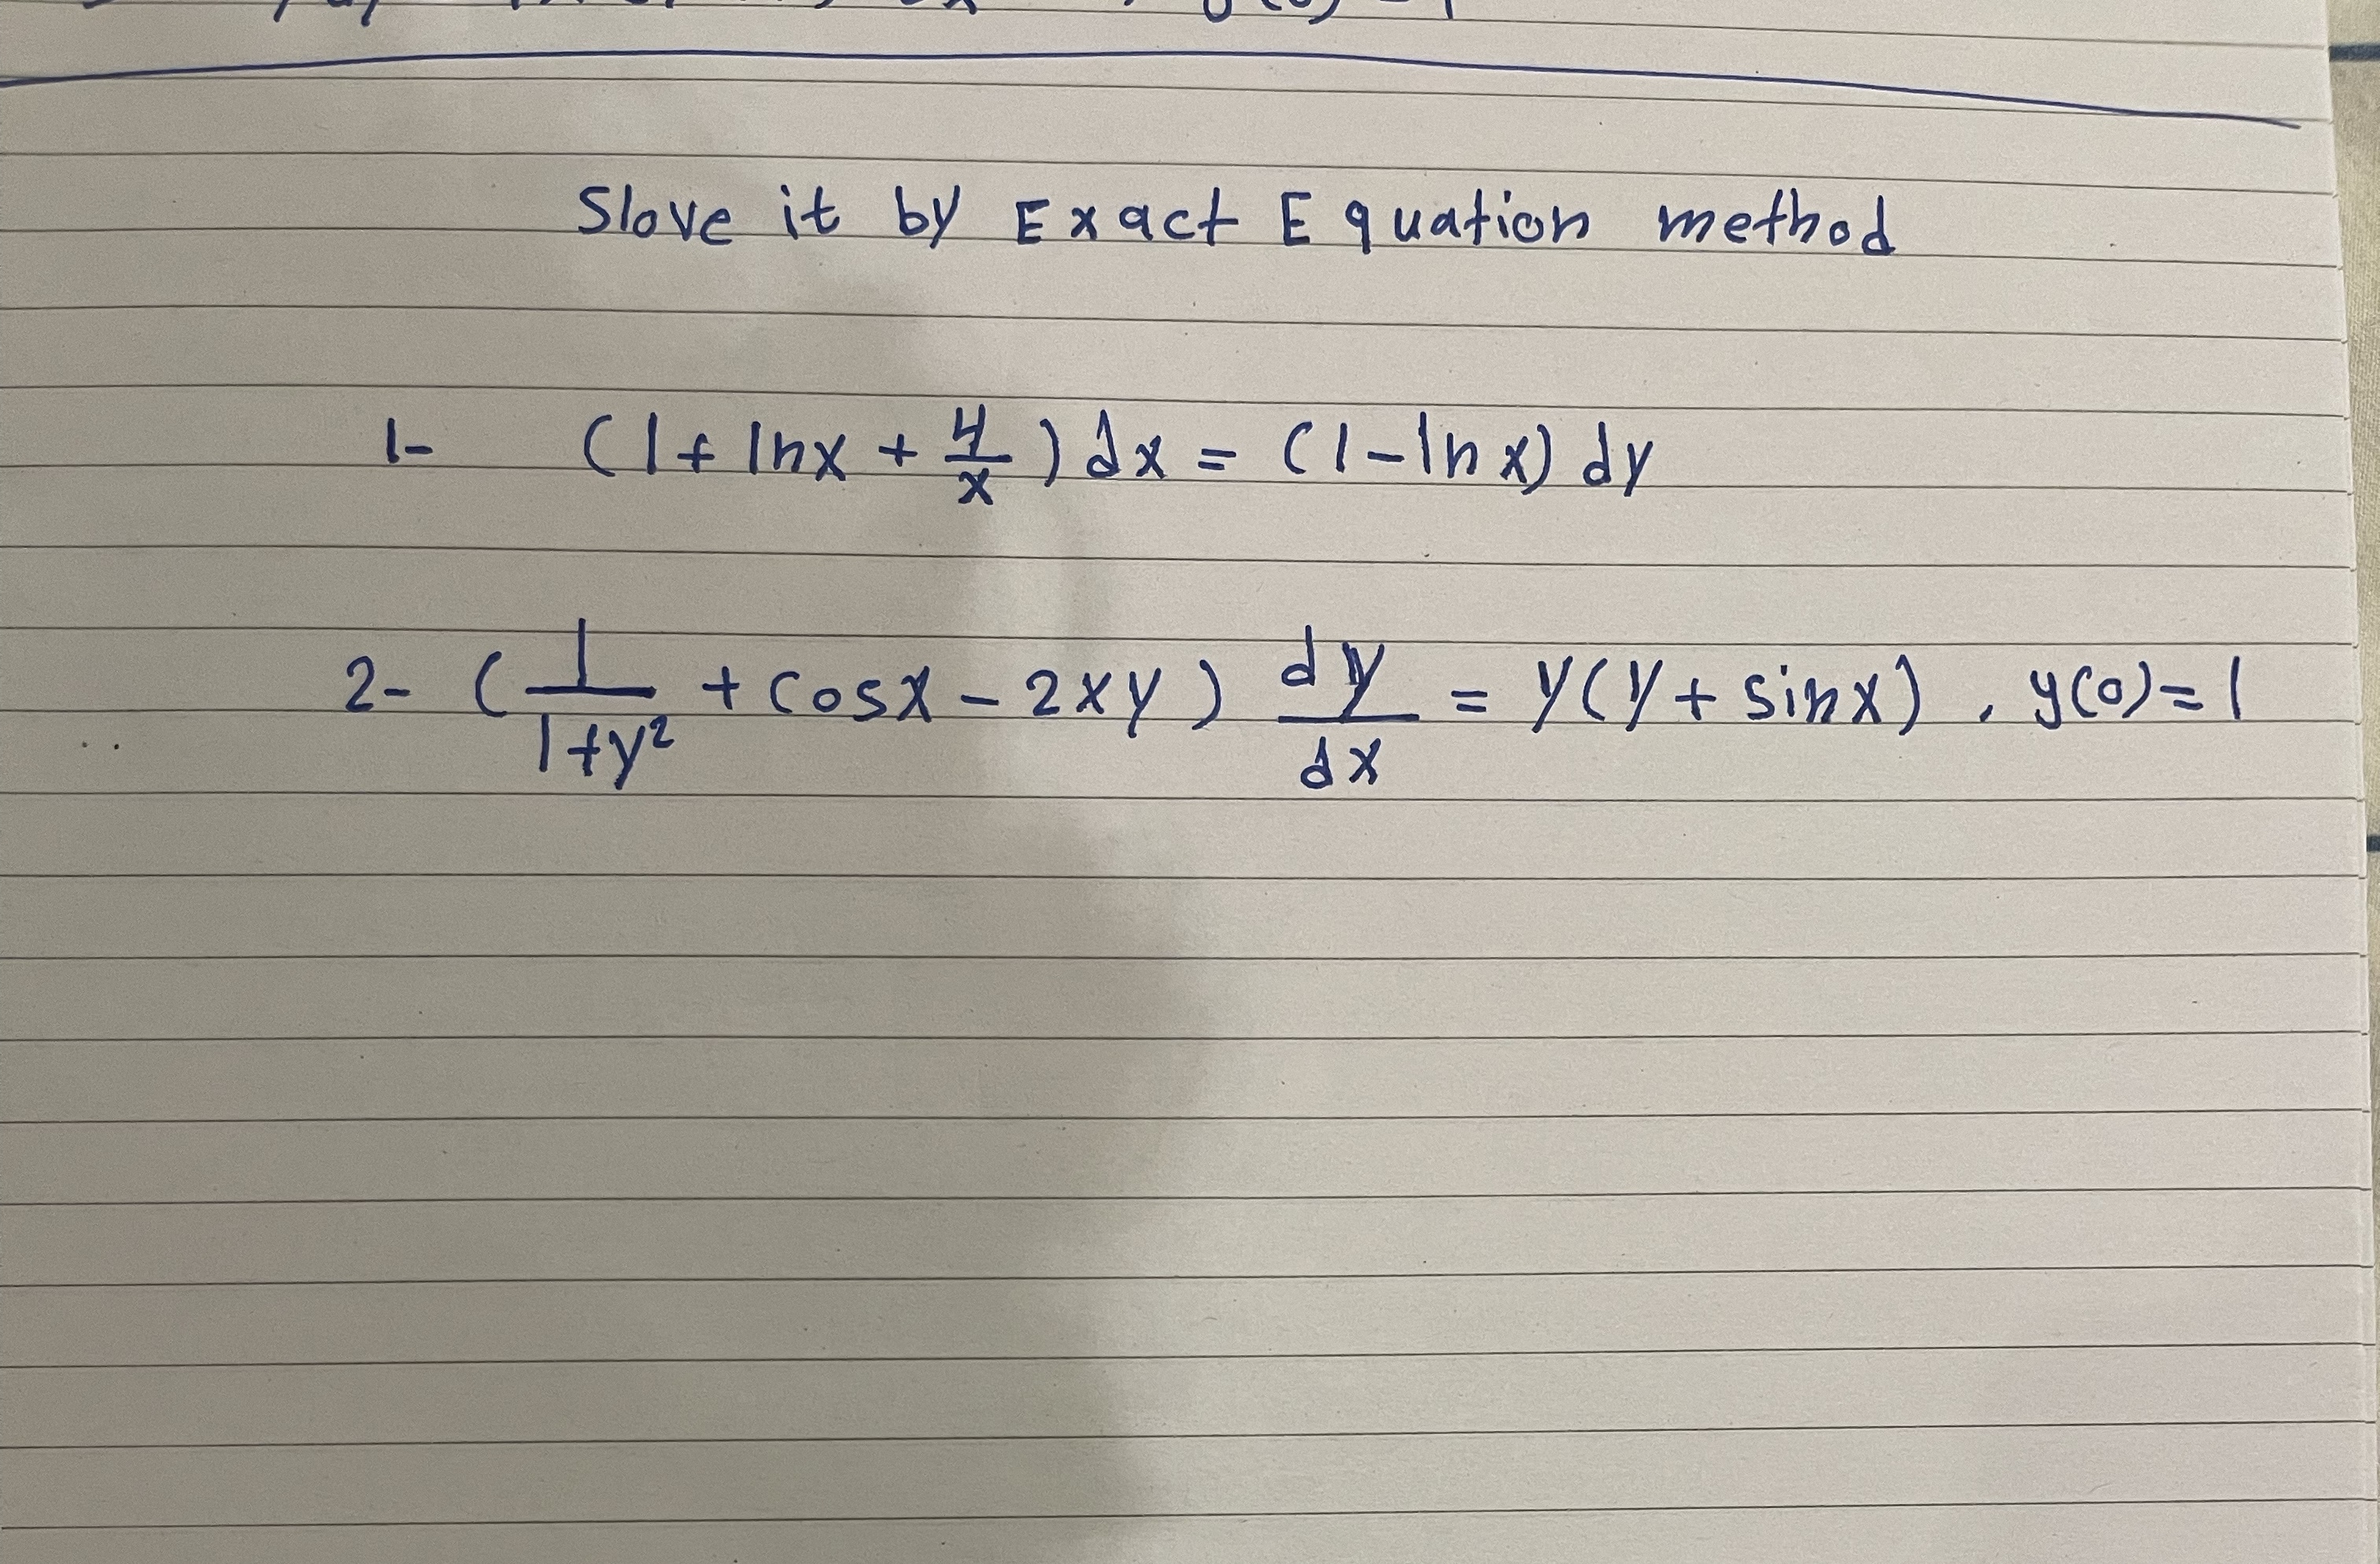 Slove it by Exact Equation method
1- (1 + lnx + 4/x) dx = (1 - ln x) dy
2- (1/(1+y²) + cosx - 2xy) dy/dx = y(y + sinx), y(0)=1